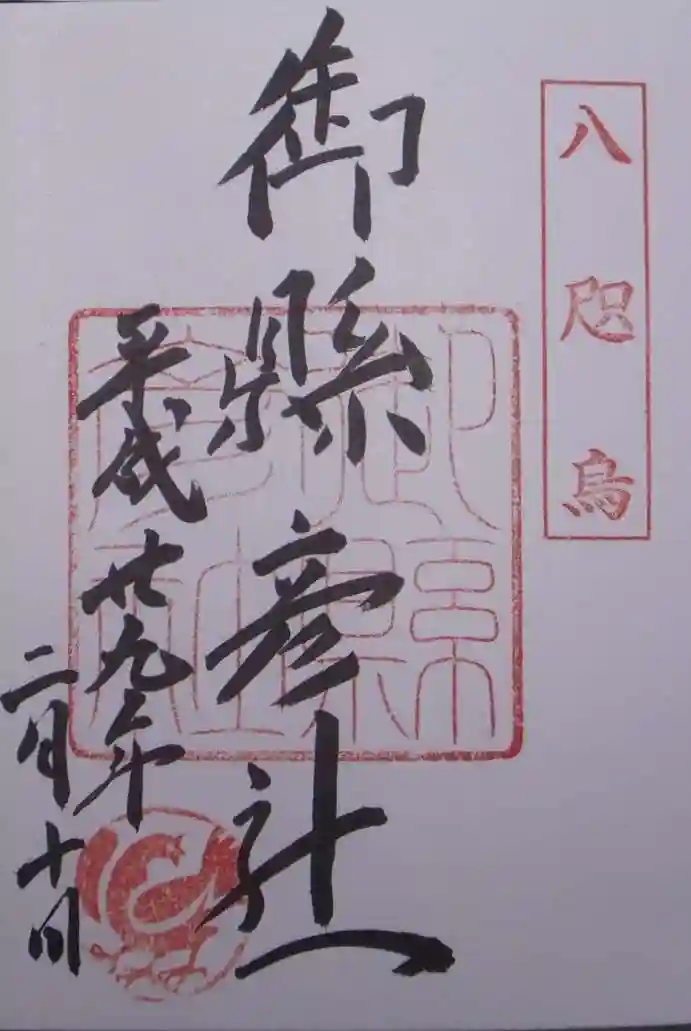 八咫烏
御縣彦社
平成廿九年
二月十日
御縣
彦社